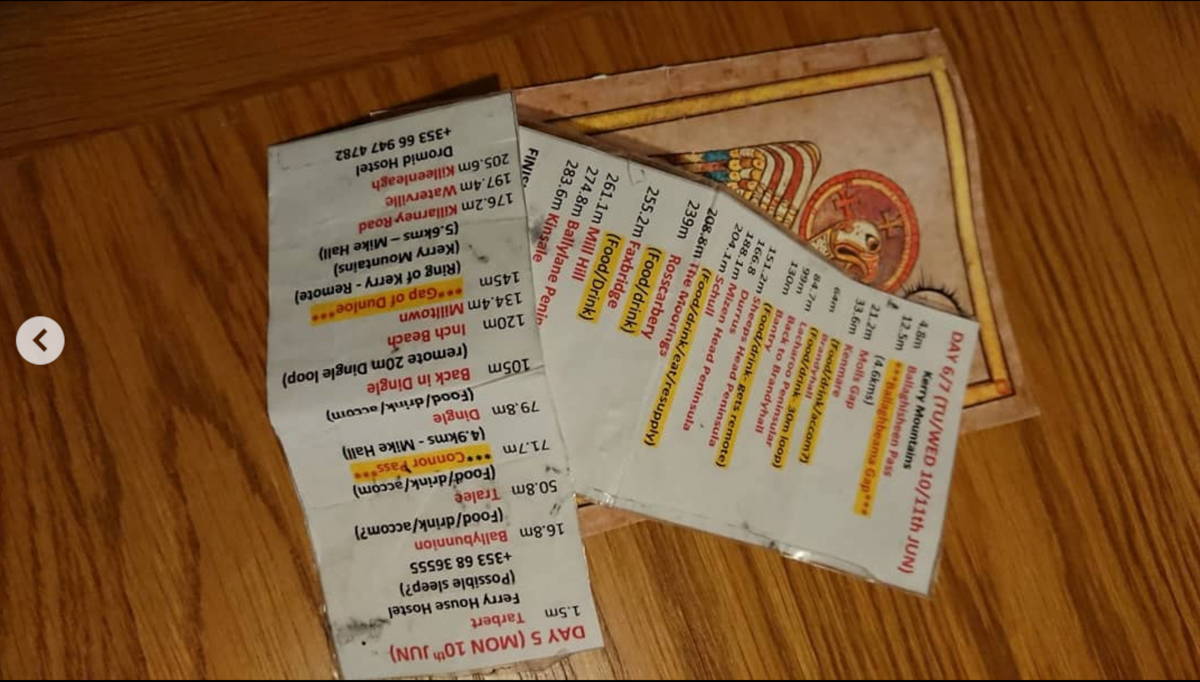 DAY 5 (MON 10th JUN)
1.5m Tarbert
Ferry House Hostel
(Possible sleep?)
+353 68 36555
16.8m Ballybunnion
(Food/drink/accom?)
50.8m Tralee
(Food/drink/accom)
71.7m ***Connor Pass***
(4.9kms - Mike Hall)
79.8m Dingle
(Food/drink/accom)
105m Back in Dingle
(remote 20m Dingle loop)
120m Inch Beach
134.4m Milltown
145m ***Gap of Dunloe***
(Ring of Kerry - Remote)
(Kerry Mountains)
(5.6kms – Mike Hall)
176.2m Killarney Road
197.4m Waterville
205.6m Killeenleagh
Dromid Hostel
+353 66 947 4782
DAY 6/7 (TU/WED 10/11th JUN)
Kerry Mountains
4.8m Ballaghisheen Pass
12.5m ***Ballaghbeama Gap***
(4.6kms)
21.2m Molls Gap
33.6m Kenmare
(Food/drink/accom?)
64m Brandyhall
(Food/drink- 30m loop)
84.7m Lacharoo Peninsular
99m Back to Brandyhall
130m Bantry
(Food/drink- gets remote)
151.2m Sheeps Head Peninsula
166.8 Durrus
188.1m Mizen Head Peninsula
204.1m Schull
(Food/drink/eat/resupply)
208.8m The Moorings
239m Rosscarbery
(Food/drink)
255.2m Faxbridge
(Food/Drink)
261.1m Mill Hill
274.8m Ballylane Penin
283.6m Kinsale
FINIS